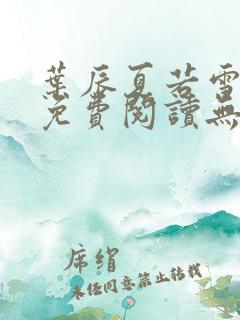 葉辰夏若雪
免費閱讀無
席绢
未经同意禁止转载